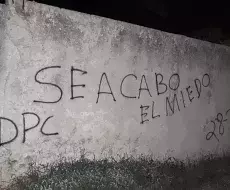 SE ACABO
EL MIEDO
DPC